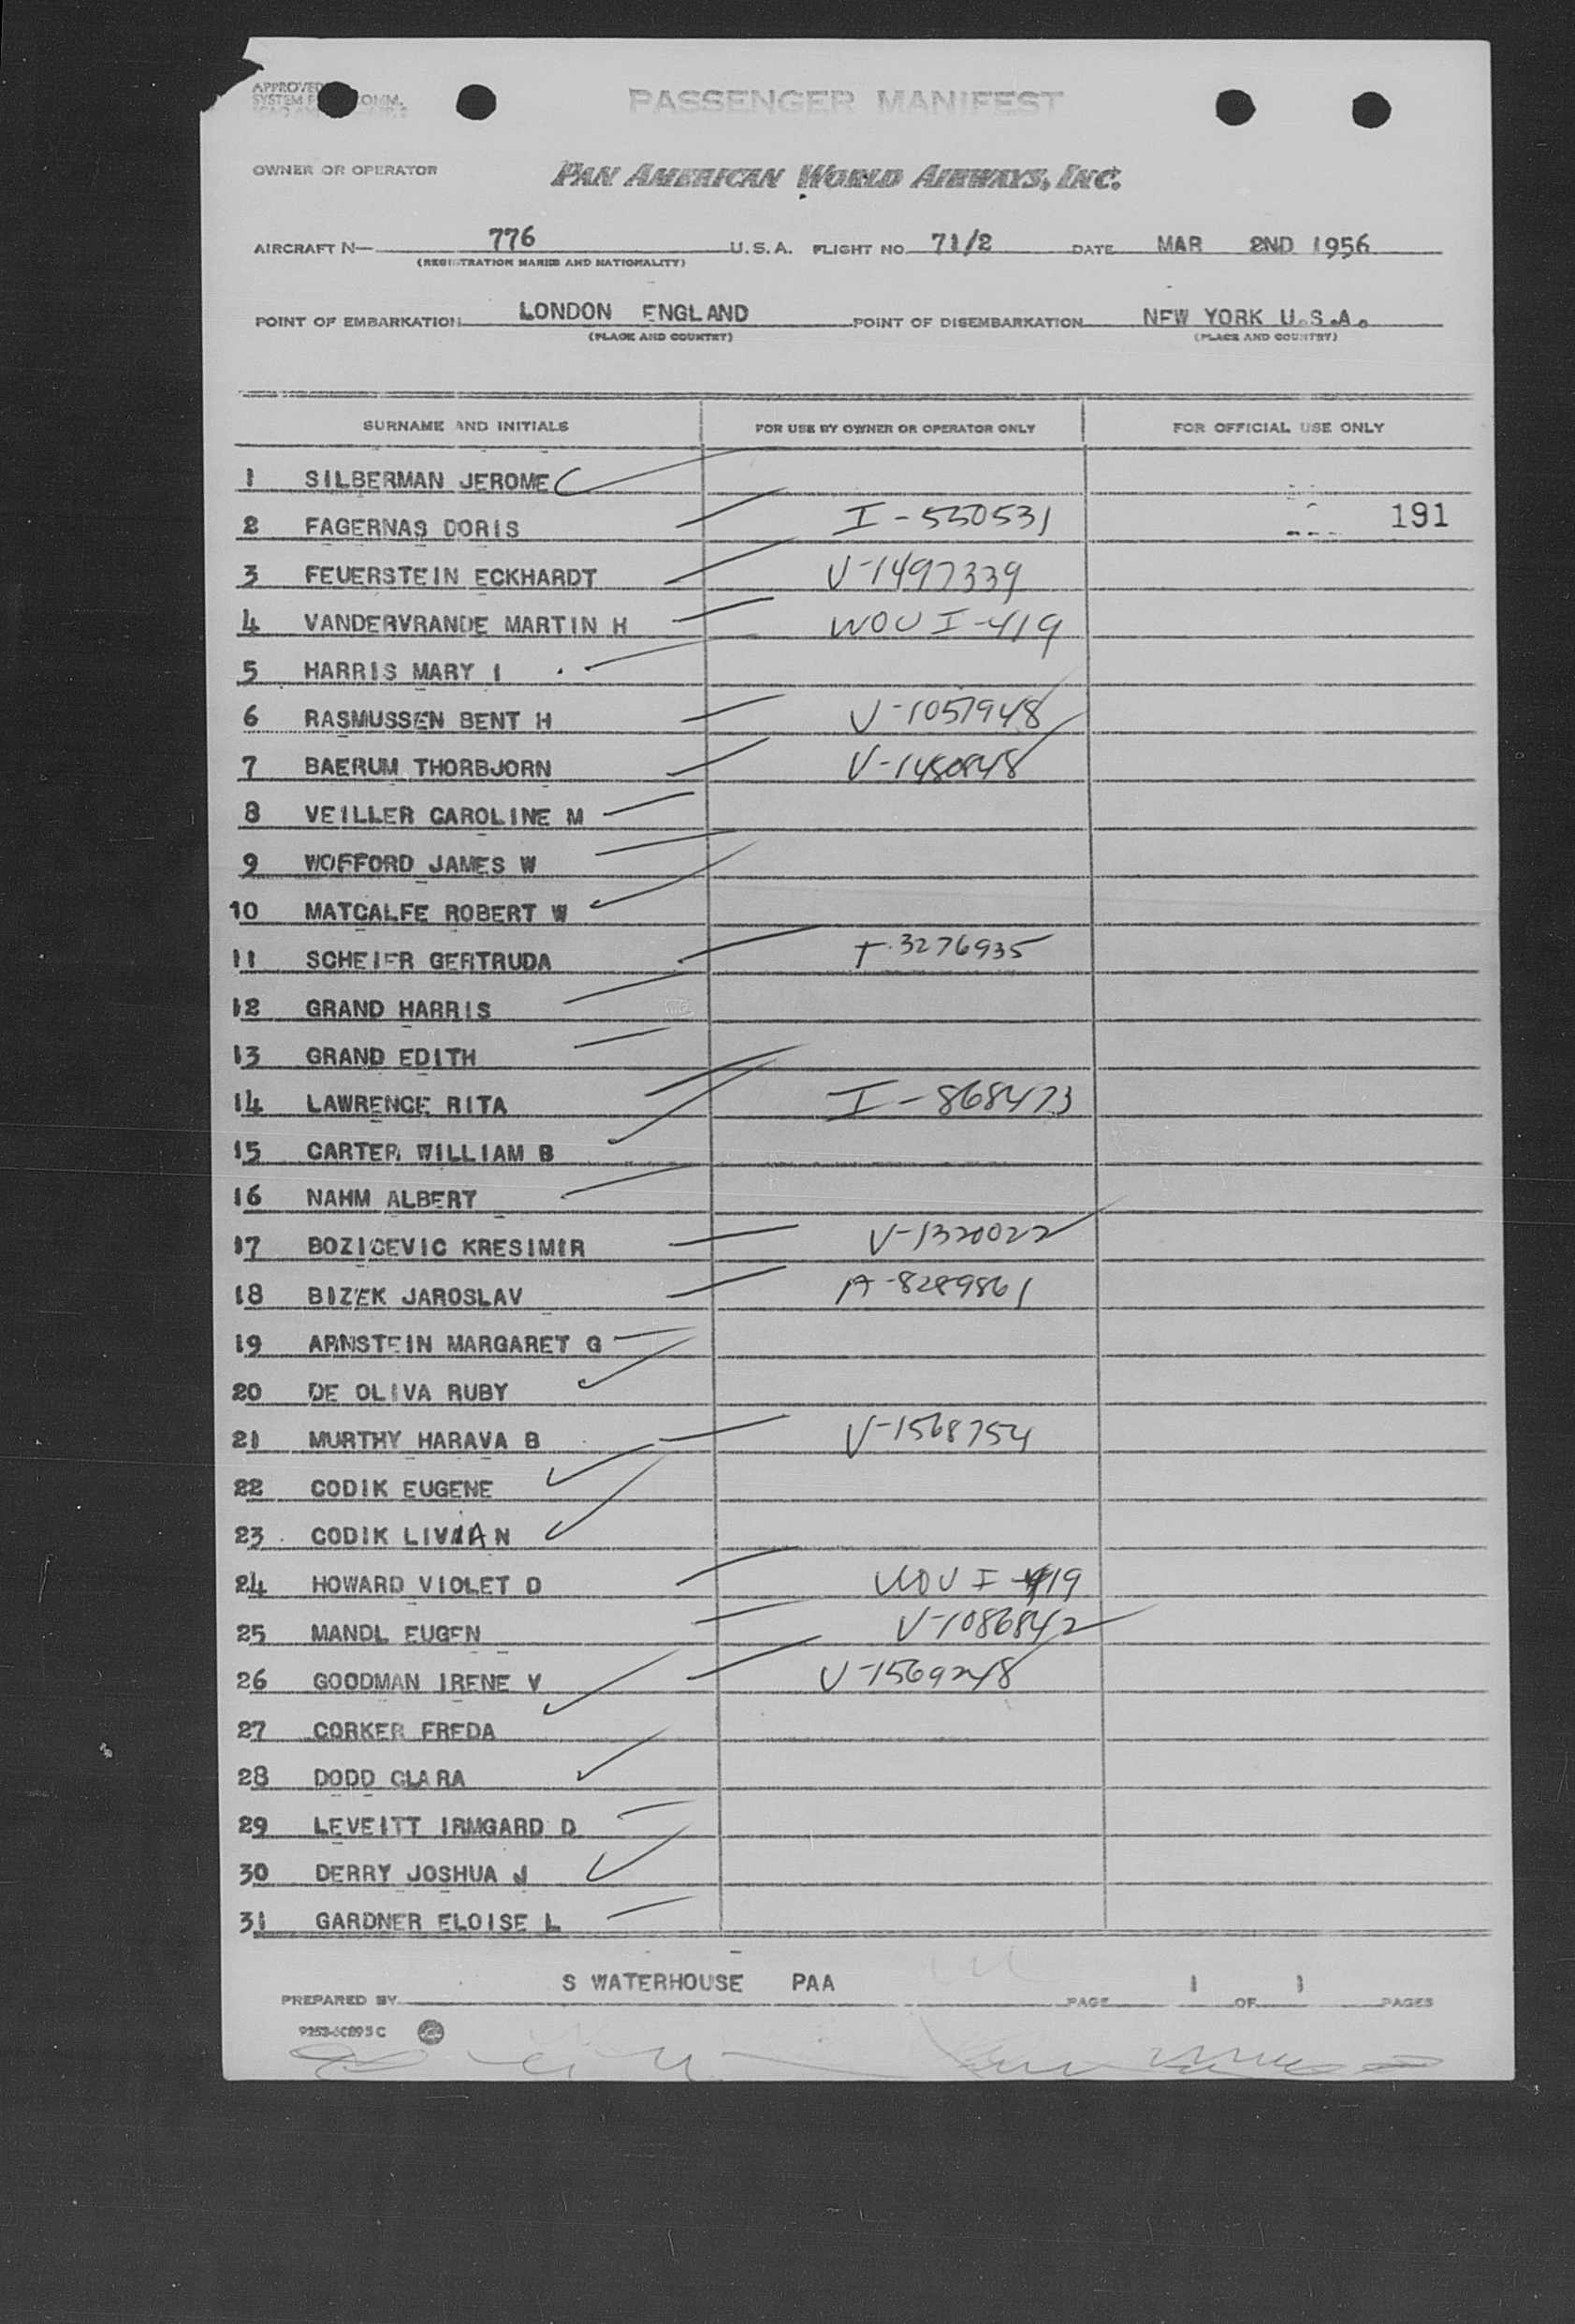 APPROVED
SYSTEM COMM.
PASSENGER MANIFEST
OWNER OR OPERATOR PAN AMERICAN WORLD AIRWAYS, INC.
AIRCRAFT N— 776 U.S.A. FLIGHT NO. 71/2 DATE MAR 2ND 1956
(REGISTRATION MARKS AND NATIONALITY)
POINT OF EMBARKATION LONDON ENGLAND POINT OF DISEMBARKATION NEW YORK U.S.A.
(PLACE AND COUNTRY) (PLACE AND COUNTRY)
SURNAME AND INITIALS FOR USE BY OWNER OR OPERATOR ONLY FOR OFFICIAL USE ONLY
1 SILBERMAN JEROME
2 FAGERNAS DORIS I-550531 191
3 FEUERSTEIN ECKHARDT V-1497339
4 VANDERVRANDE MARTIN H WOU I-419
5 HARRIS MARY I
6 RASMUSSEN BENT H V-1057948
7 BAERUM THORBJORN V-1480848
8 VEILLER CAROLINE M
9 WOFFORD JAMES W
10 MATCALFE ROBERT W
11 SCHEIER GERTRUDA T-3276935
12 GRAND HARRIS
13 GRAND EDITH
14 LAWRENCE RITA I-868473
15 CARTER WILLIAM B
16 NAHM ALBERT
17 BOZICEVIC KRESIMIR V-1320022
18 BIZEK JAROSLAV A-8289861
19 ARNSTEIN MARGARET G
20 DE OLIVA RUBY
21 MURTHY HARAVA B V-1568754
22 CODIK EUGENE
23 CODIK LIVIAN
24 HOWARD VIOLET D WOU I-419
25 MANDL EUGEN V-1086842
26 GOODMAN IRENE V V-1569248
27 CORKER FREDA
28 DODD CLARA
29 LEVEITT IRMGARD D
30 DERRY JOSHUA J
31 GARDNER ELOISE L
PREPARED BY S WATERHOUSE PAA PAGE 1 OF 1 PAGES